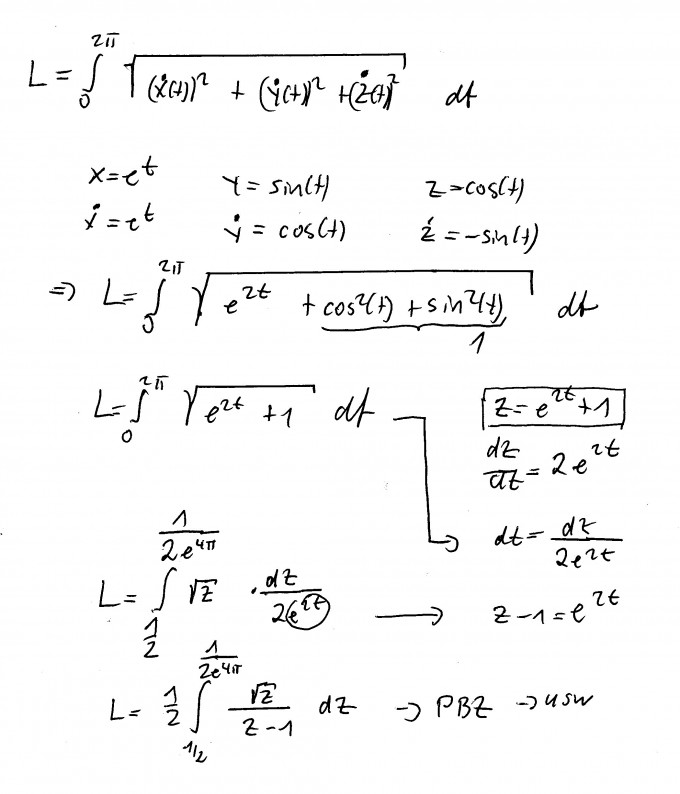 L = ∫₀^{2π} √((ẋ(t))² + (ẏ(t))² + (ż(t))²) dt
x = e^t   y = sin(t)   z = cos(t)
ẋ = e^t   ẏ = cos(t)   ż = -sin(t)
=> L = ∫₀^{2π} √(e^{2t} + cos²(t) + sin²(t)) dt
1
L = ∫₀^{2π} √(e^{2t} + 1) dt   z = e^{2t} + 1
dz/dt = 2e^{2t}
→ dt = dz/(2e^{2t})
L = ∫_{1/2}^{1/(2e^{4π})} √z · dz/(2e^{2t}) → z - 1 = e^{2t}
L = 1/2 ∫_{1/2}^{1/(2e^{4π})} √z/(z - 1) dz → PBZ → usw